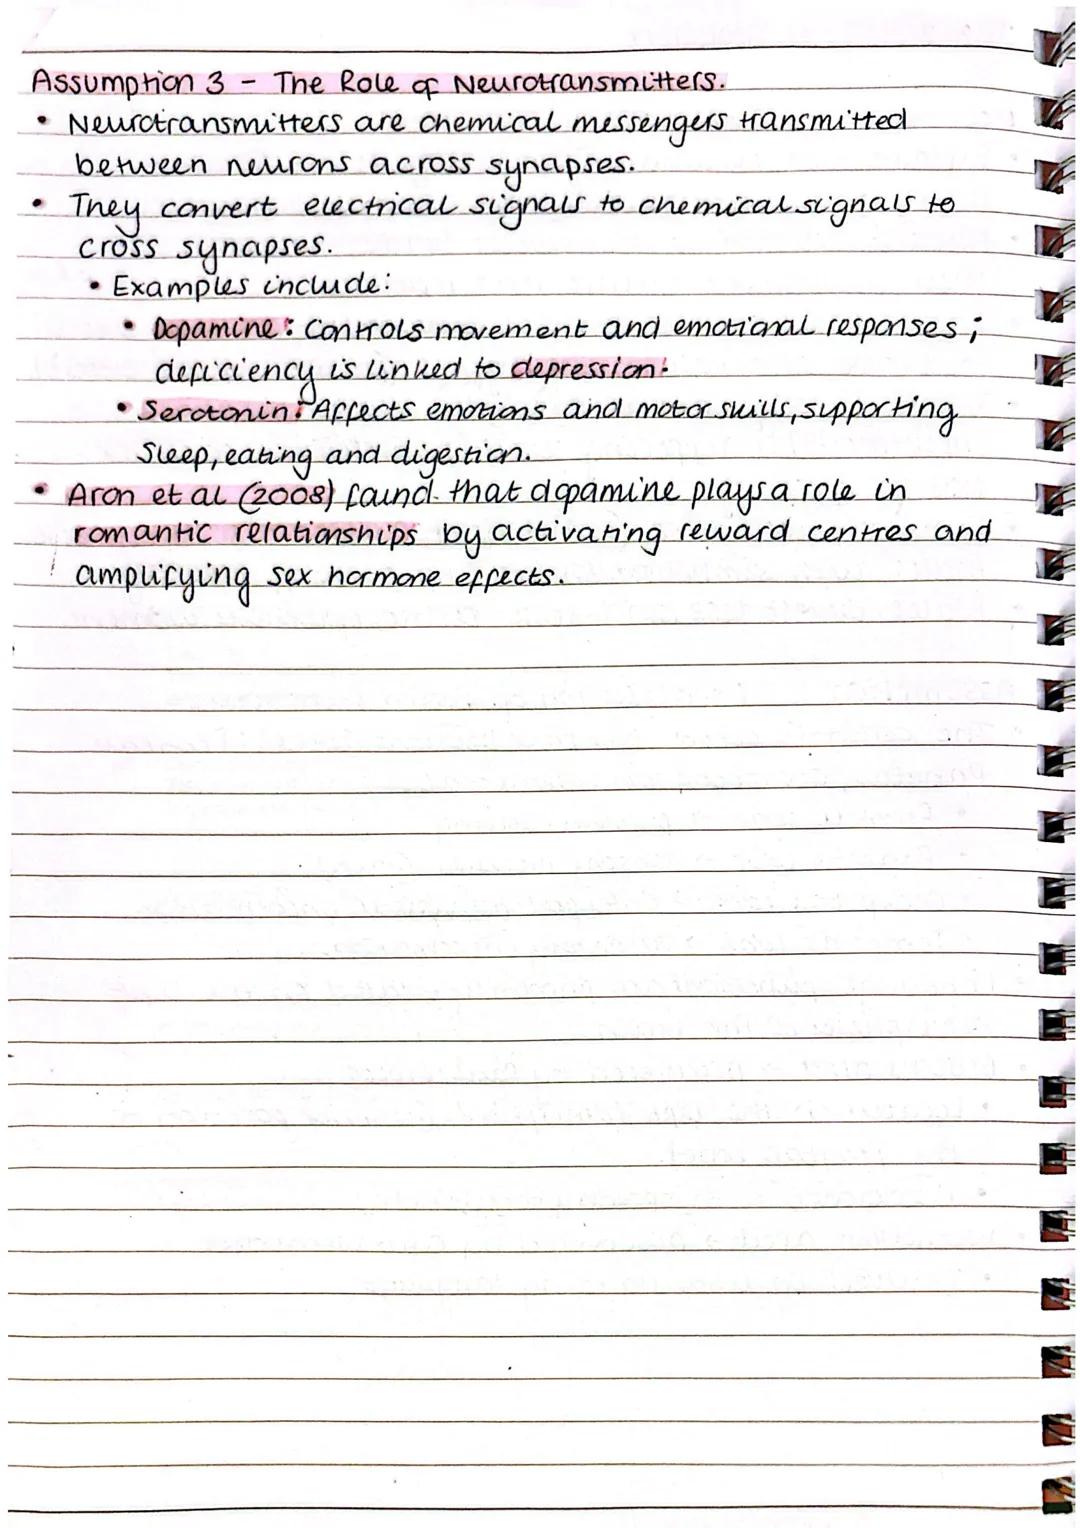 Assumption 3 - The Role of Neurotransmitters.
• Neurotransmitters are chemical messengers transmitted
between neurons across synapses.
• They convert electrical signals to chemical signals to
cross synapses.
• Examples include:
• Dopamine: Controls movement and emotional responses;
deficiency is linked to depression.
• Serotonin: Affects emotions and motor skills, supporting
Sleep, eating and digestion.
• Aron et al (2008) found that dopamine plays a role in
romantic relationships by activating reward centres and
amplifying sex hormone effects.